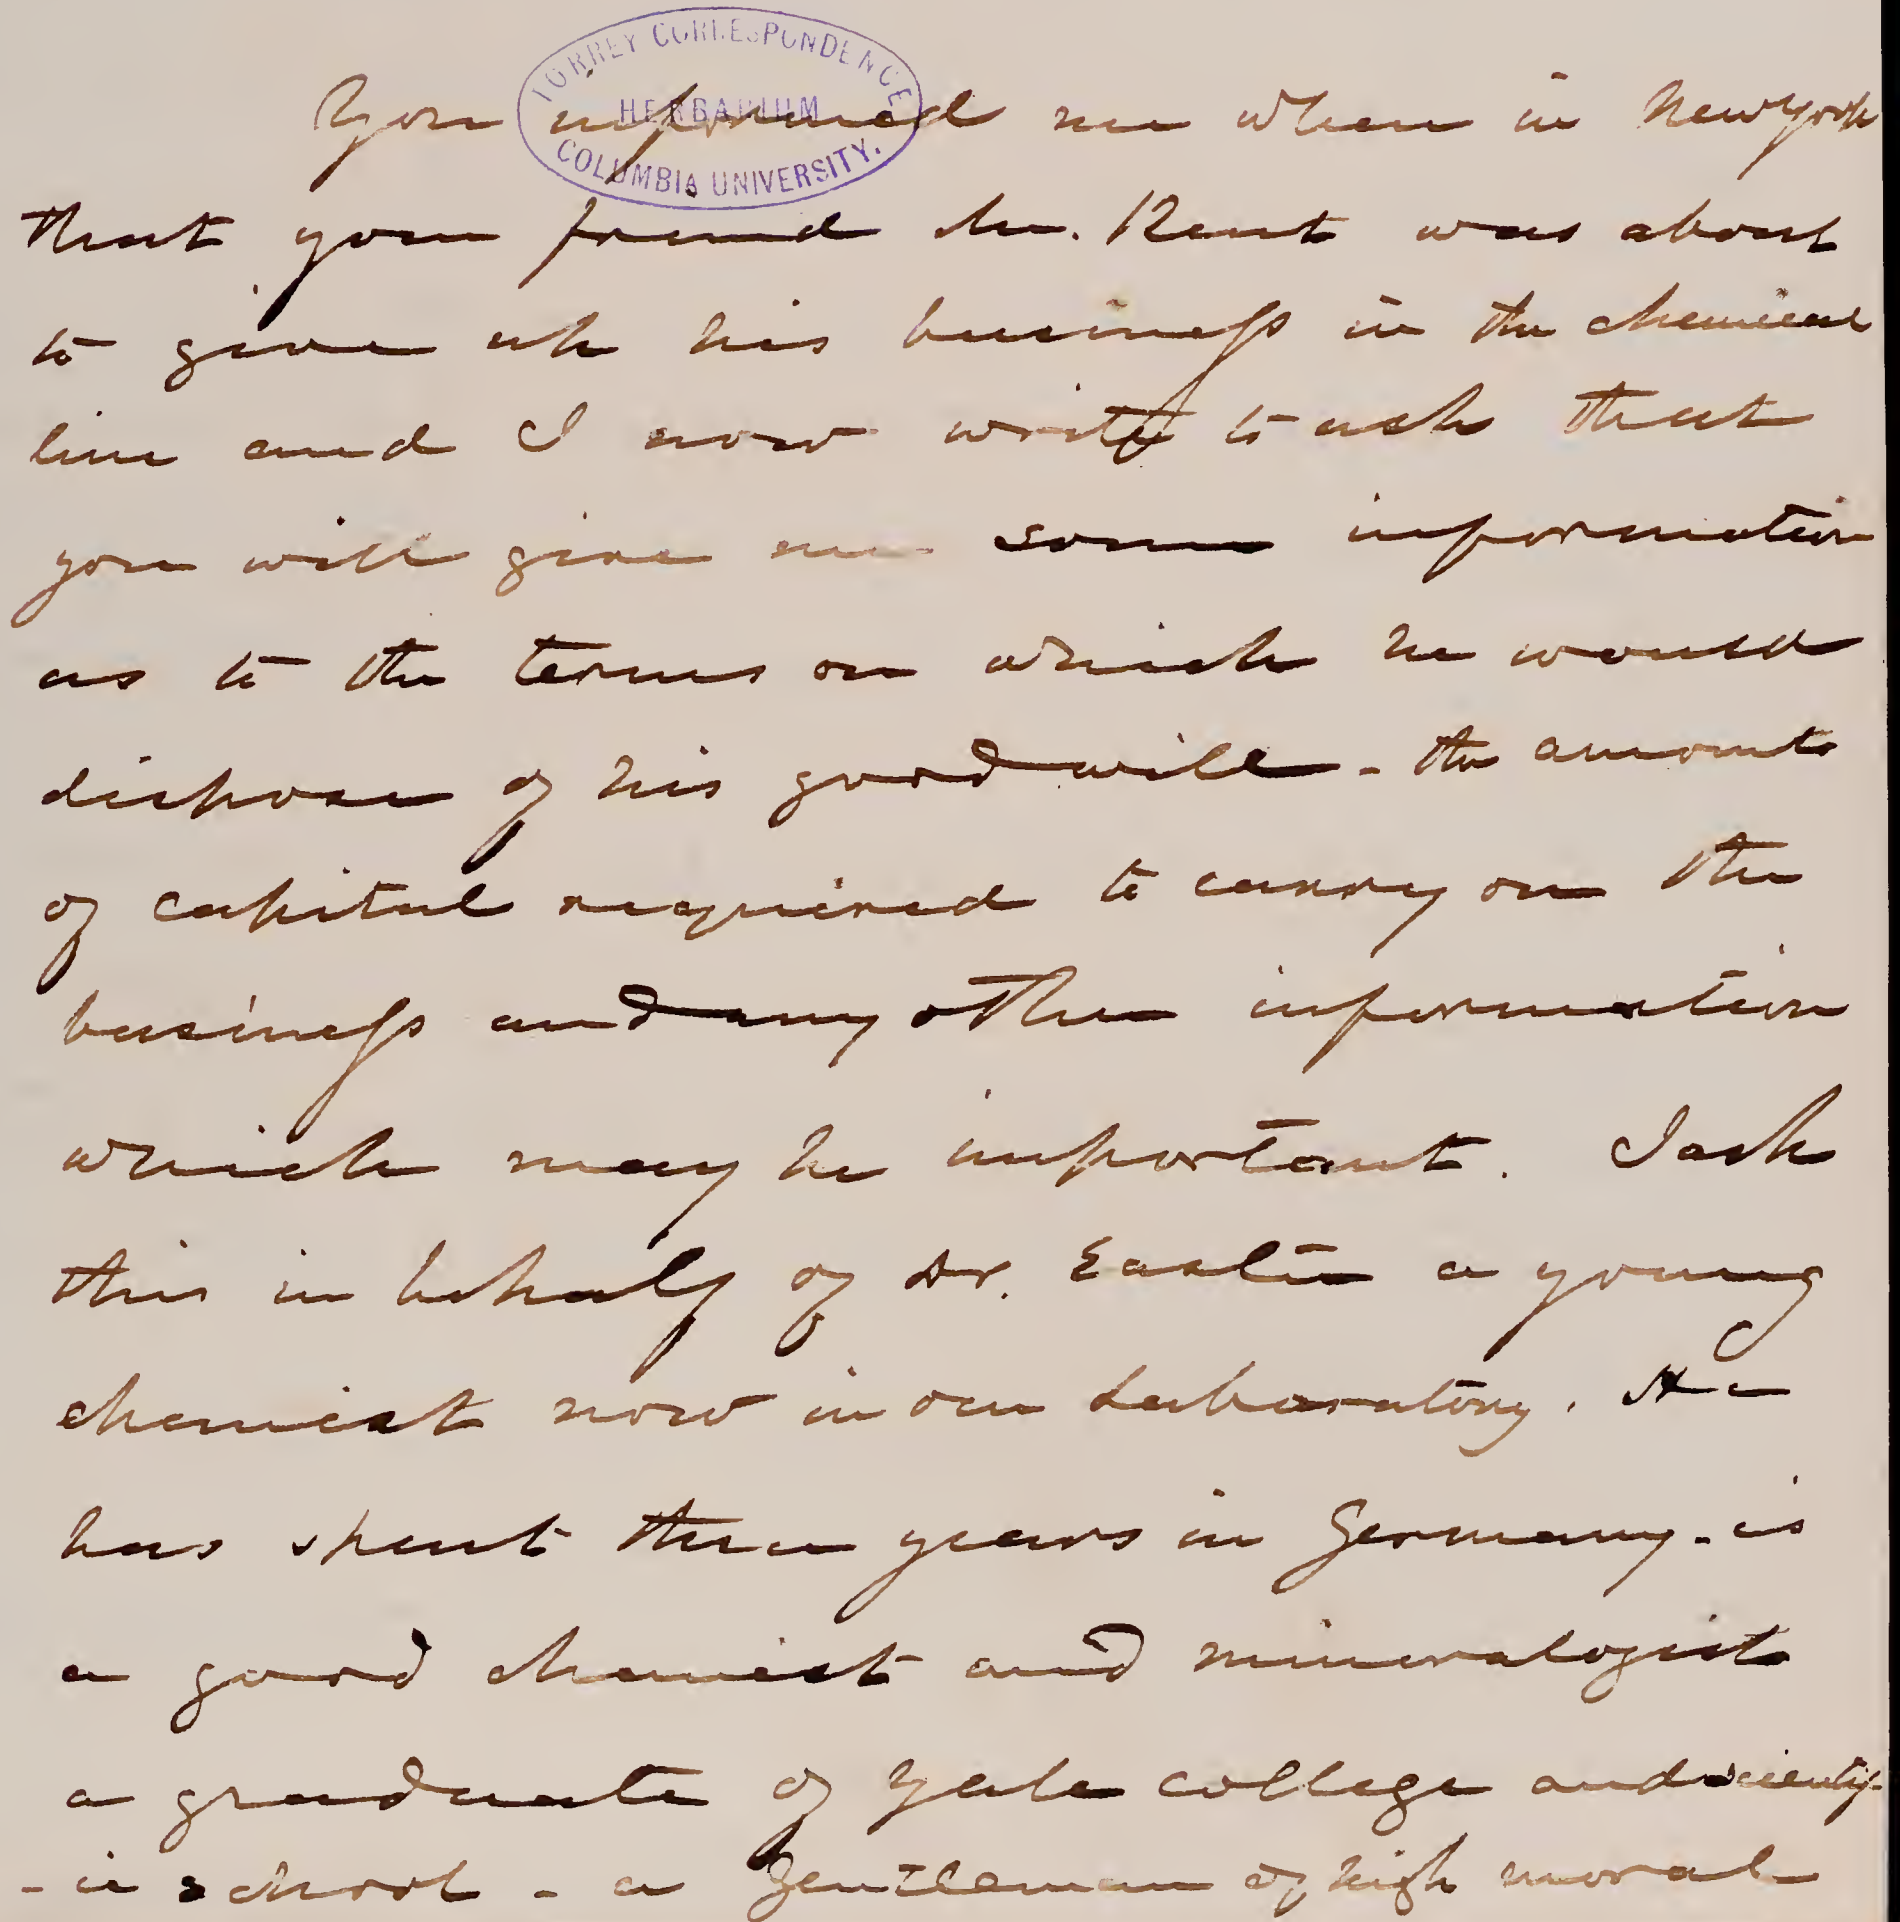 TORREY CORRESPONDENCE
HERBARIUM
COLUMBIA UNIVERSITY.
You informed me when in New York
that your friend Mr. Kent was about
to give up his business in the chemical
line and I now write to ask that
you will give me some information
as to the terms on which he would
dispose of his good will - the amount
of capital required to carry on the
business and any other information
which may be important. I ask
this in behalf of Dr. a young
chemist now in our Laboratory. He
has spent three years in Germany - is
a good chemist and mineralogist
a graduate of Yale College and scientif-
-ic school - a gentleman of high moral